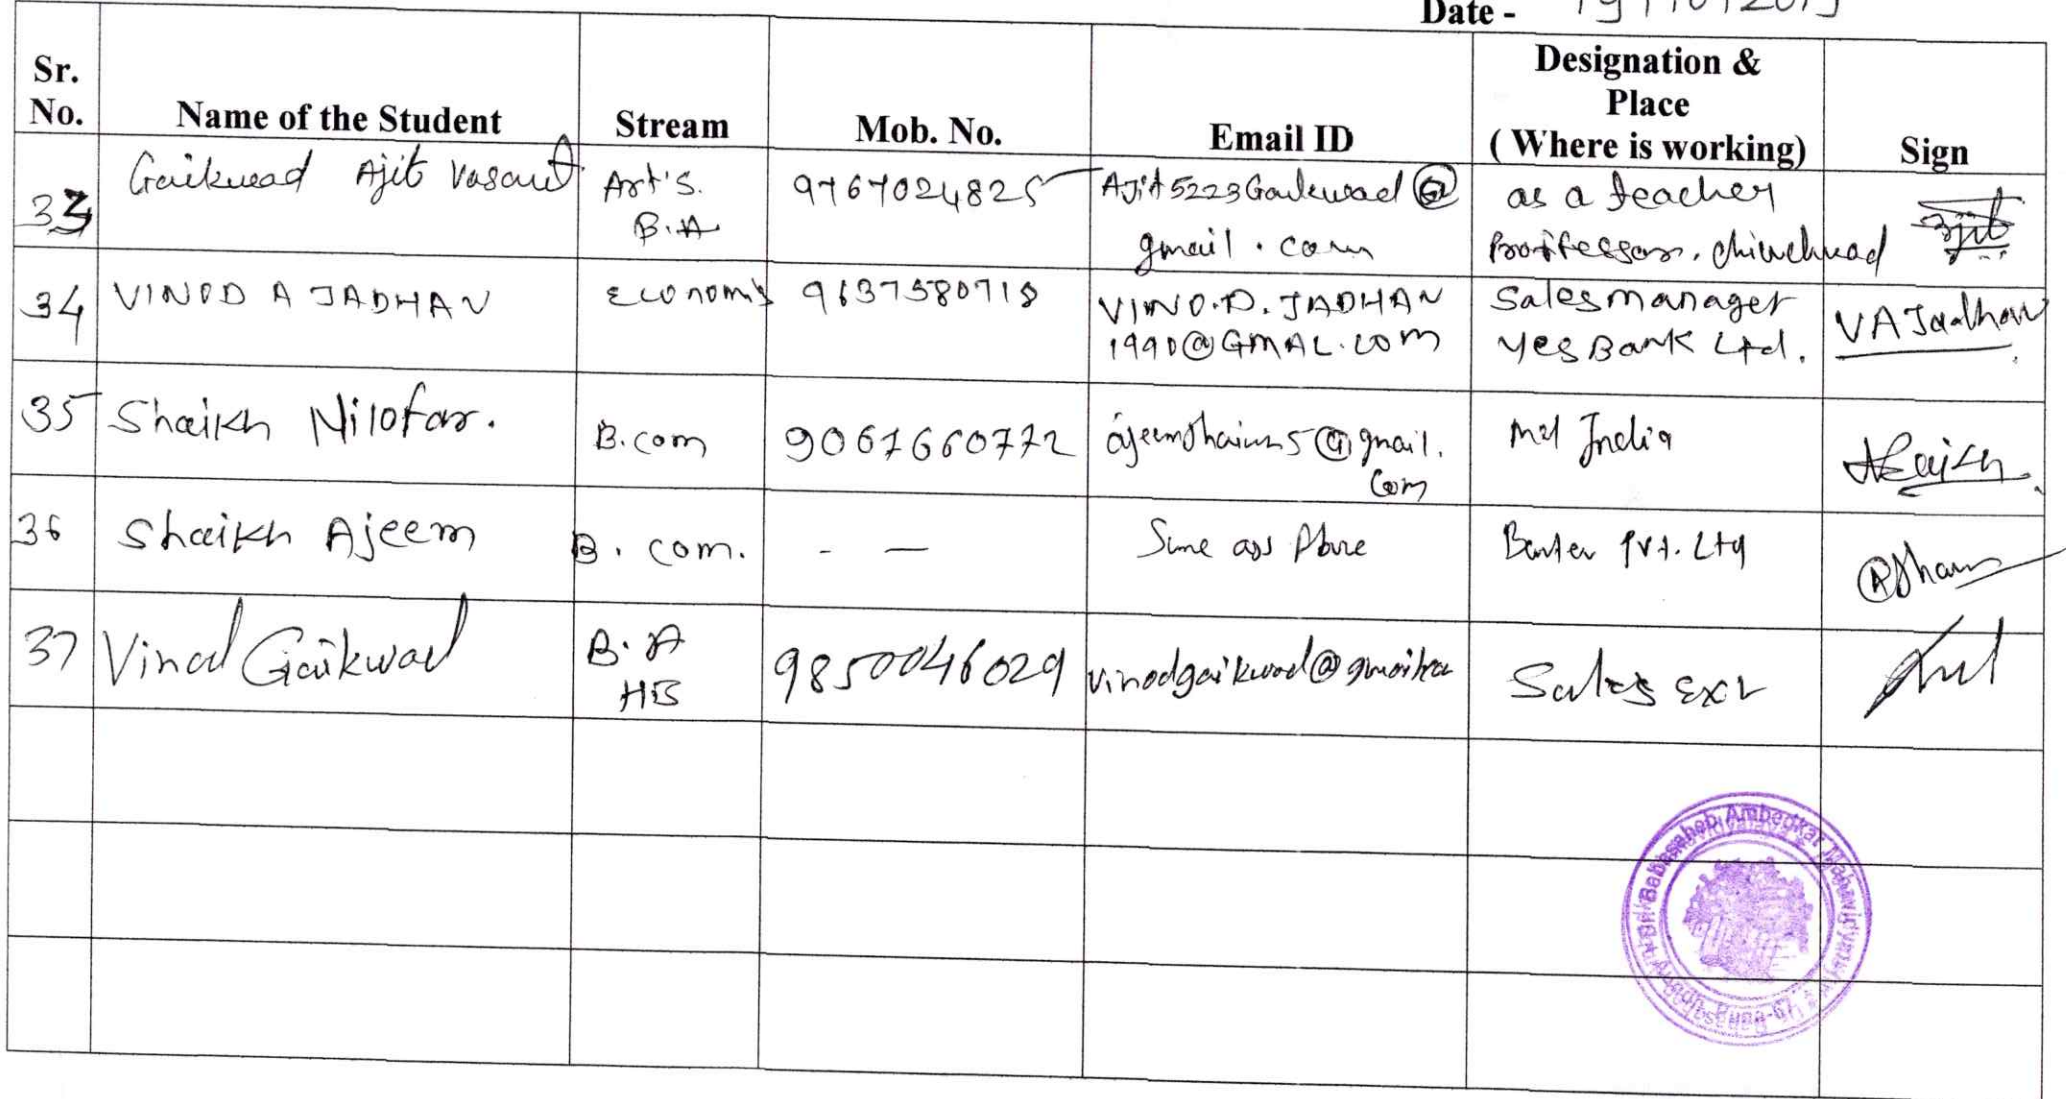 Date - 19/10/2019
Sr. No. Name of the Student Stream Mob. No. Email ID Designation & Place ( Where is working) Sign
33 Gaikwad Ajit Vasant Art's. B.A 9767024825 Ajit5223Gaikwad@ gmail.com as a teacher Proffessor, chinchwad
34 VINOD A JADHAV Economis 9637580718 VINO.D.JADHAV 1990@GMAL.COM Sales manager Yes Bank Ltd. VAJadhav
35 Shaikh Nilofar. B.com 9067660772 ajeemshaikh5@gmail. com India
36 Shaikh Ajeem B. com. - — Pvt. Ltd
37 Vinod Gaikwad B.A HB 9850046029 Sales Exe
Dr. Babasaheb Ambedkar Mahavidyalaya
Aundh, Pune-67